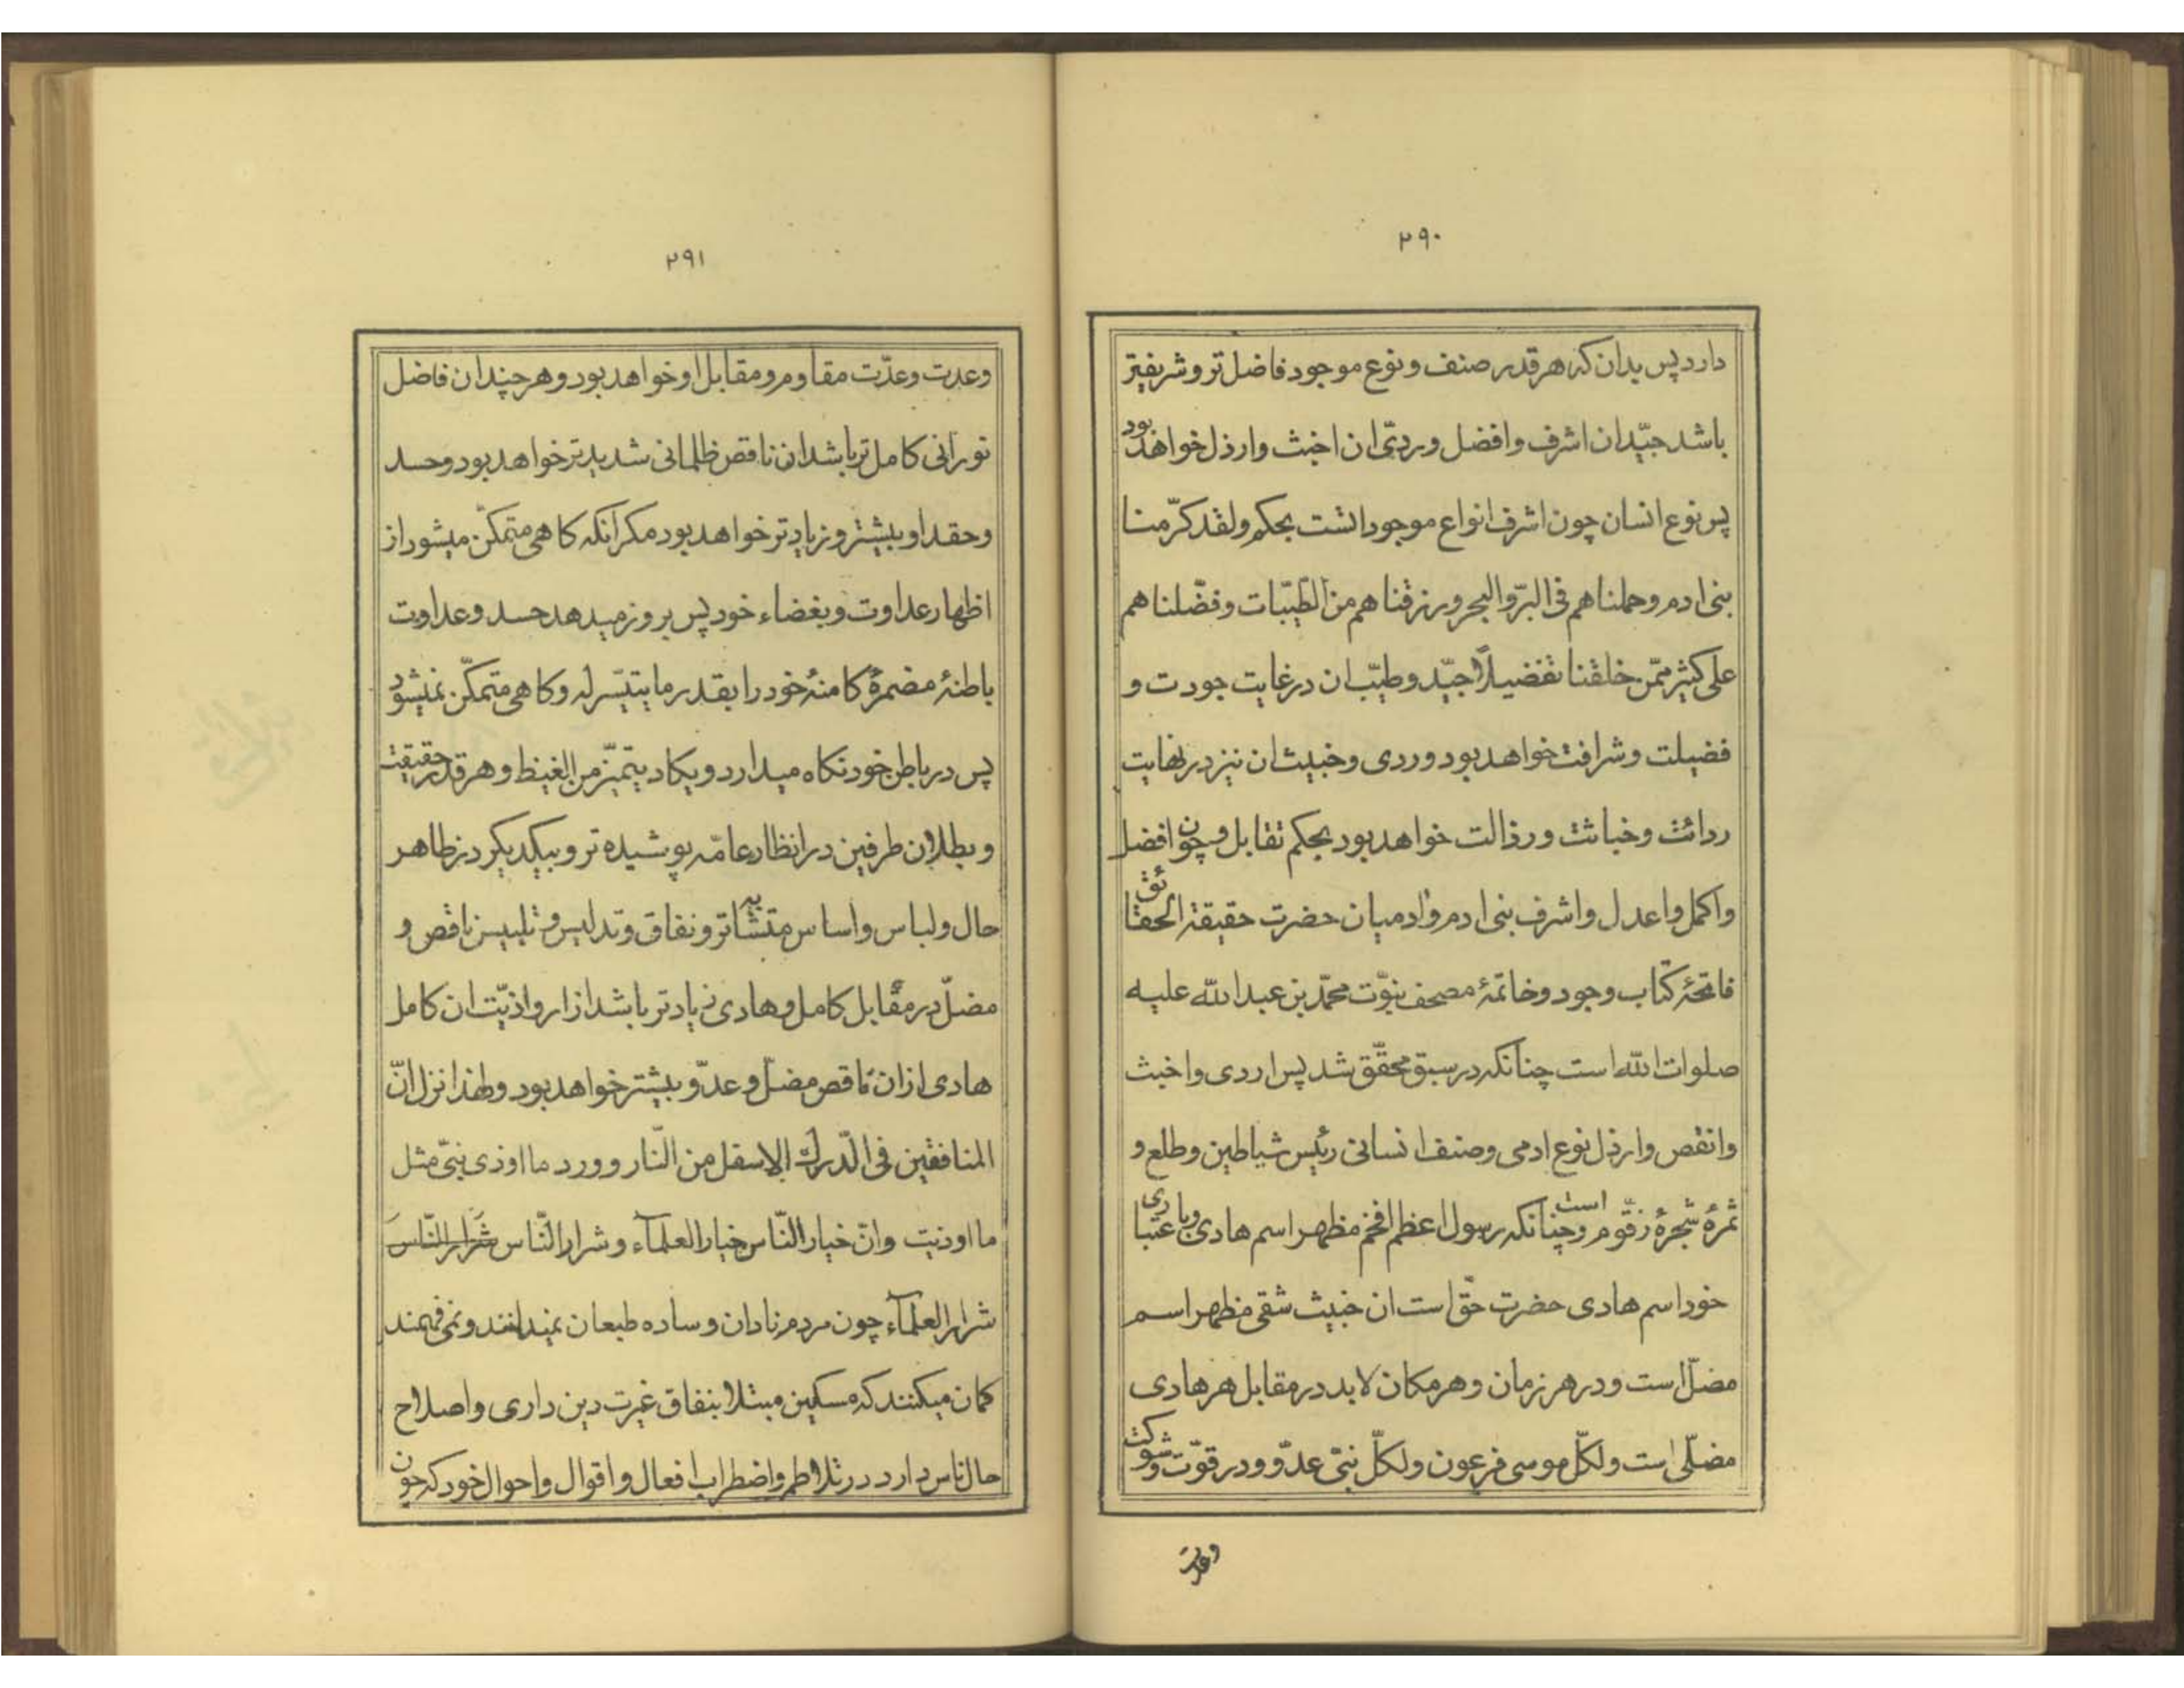 ۲۹۰
دارد پس بدان که هر قدر صنف و نوع موجود فاضل تر و شریفتر
باشد جیّد ان اشرف و افضل و ردیّ ان اخبث و ارذل خواهد بود
پس نوع انسان چون اشرف انواع موجوداتست بحکم ولقد کرّمنا
بنی ادم وحملناهم فی البرّ والبحر ورزقناهم من الطّیّبات وفضّلناهم
علی کثیر ممّن خلقنا تفضیلاً جیّد و طیّب ان در غایت جودت و
فضیلت و شرافت خواهد بود و ردی و خبیث ان نیز در نهایت
ردائت و خباثت و رذالت خواهد بود بحکم تقابل و چون افضل
و اکمل و اعدل و اشرف بنی ادم و ادمیان حضرت حقیقة الحقائق
فاتحهٔ کتاب وجود و خاتمهٔ مصحف نبوّت محمّد بن عبد الله علیه
صلوات الله است چنانکه در سبق محقّق شد پس اردی و اخبث
و انقص و ارذل نوع ادمی و صنف انسانی رئیس شیاطین و طلع و
ثمرهٔ شجرهٔ زقّوم است و چنانکه رسول اعظم افخم مظهر اسم هادی و باعتباری
خود اسم هادی حضرت حقّ است ان خبیث شقی مظهر اسم
مضلّ است و در هر زمان و هر مکان لابد در مقابل هر هادی
مضلّی است ولکلّ موسی فرعون ولکلّ نبیّ عدوّ و در قوّت و شوکت
وعدت
۲۹۱
وعدت وعدّت مقاوم و مقابل او خواهد بود و هر چند ان فاضل
نورانی کامل تر باشد ان ناقص ظلمانی شدیدتر خواهد بود و حسد
و حقد او بیشتر و زیادتر خواهد بود مکر آنکه کاهی متمکّن میشود از
اظهار عداوت و بغضاء خود پس بروز میدهد حسد و عداوت
باطنهٔ مضمرهٔ کامنهٔ خود را بقدر ما یتیسّر له و کاهی متمکّن نمیشود
پس در باطن خود نکاه میدارد و یکاد یتمیّز من الغیظ و هر قدر حقیقت
و بطلان طرفین در انظار عامّه پوشیده تر و بیکدیکر در ظاهر
حال و لباس و اساس متشابه تر و نفاق و تدلیس و تلبیس ناقص و
مضلّ در مقابل کامل و هادی زیادتر باشد ازار و اذیّت ان کامل
هادی از ان ناقص مضلّ و عدوّ بیشتر خواهد بود و لهذا نزل انّ
المنافقین فی الدّرک الاسفل من النّار و ورد ما اوذی نبیّ مثل
ما اوذیت وانّ خیار النّاس خیار العلمآء وشرار النّاس شرار النّاس
شرار العلمآء چون مردم نادان و ساده طبعان نمیدانند و نمی فهمند
کمان میکنند که مسکین مبتلا بنفاق غیرت دین داری و اصلاح
حال ناس دارد در تلاطم و اضطراب افعال و اقوال و احوال خود که چون